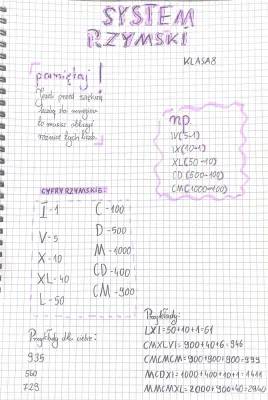 SYSTEM
RZYMSKI
KLASA 8
pamiętaj!
Jeśli przed większą
liczbą stoi mniejsza
to musisz obliczyć
różnicę tych liczb.
np.
IV(5-1)
IX(10-1)
XL(50-10)
CD(500-100)
CM(1000-100)
CYFRY RZYMSKIE:
I-1
V-5
X-10
XL-40
L-50
C-100
D-500
M-1000
CD-400
CM-900
Przykłady dla ciebie:
935
560
729
Przykłady:
LXI=50+10+1=61
CMXLVI=900+40+6=946
CMCMCM=900+900+900=999
MCDXI=1000+400+10+1=1411
MMCMXL=2000+900+40=2940